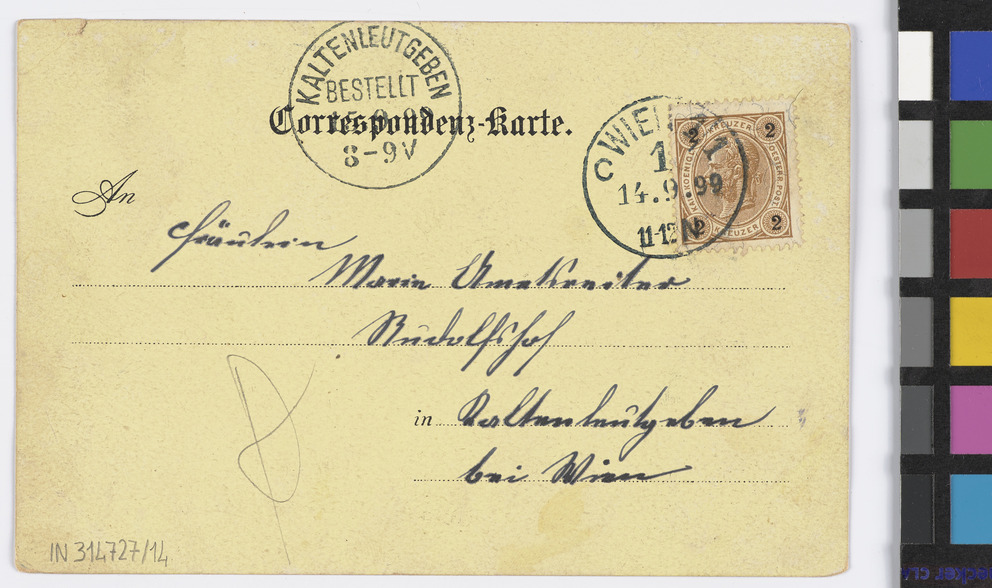 KALTENLEUTGEBEN
BESTELLT
8-9V
Correspondenz-Karte.
WIEN
1
14.9.99
11-12N
2 KREUZER 2
KAIS. KOENIGL. OESTERR. POST.
2 KREUZER 2
An
Fräulein
Marie Ametsreiter
Rudolfshof
in Kaltenleutgeben
bei Wien
IN 314727/14